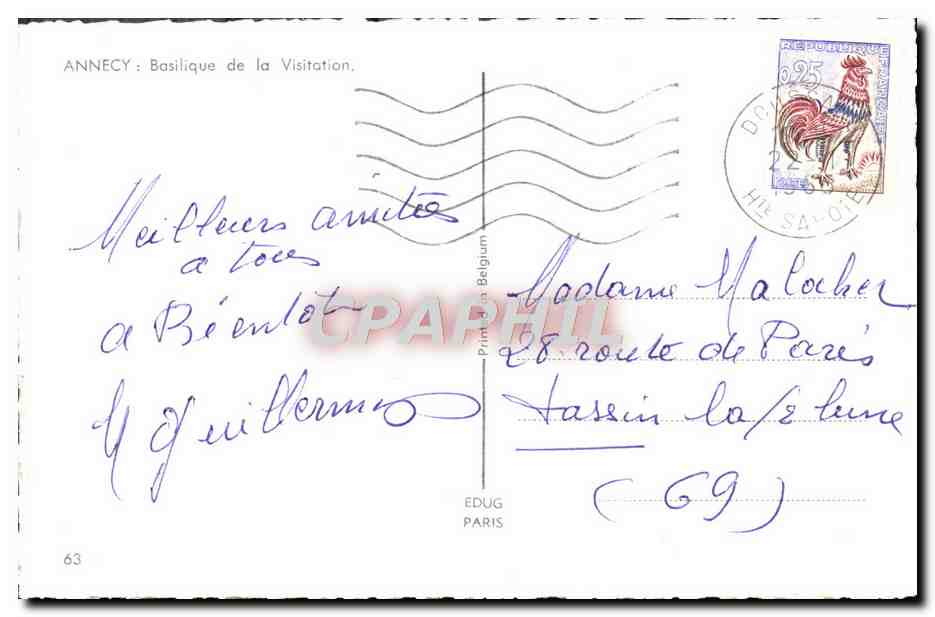 ANNECY : Basilique de la Visitation.
RÉPUBLIQUE FRANÇAISE
0,25
22
Hte SAVOIE
Meilleurs amitiés
a tous
a Bientôt
M Guillermo
Print in Belgium
CPAPHIL
Madame Malaher
28 route de Paris
Tassin la 1/2 lune
(69)
EDUG
PARIS
63